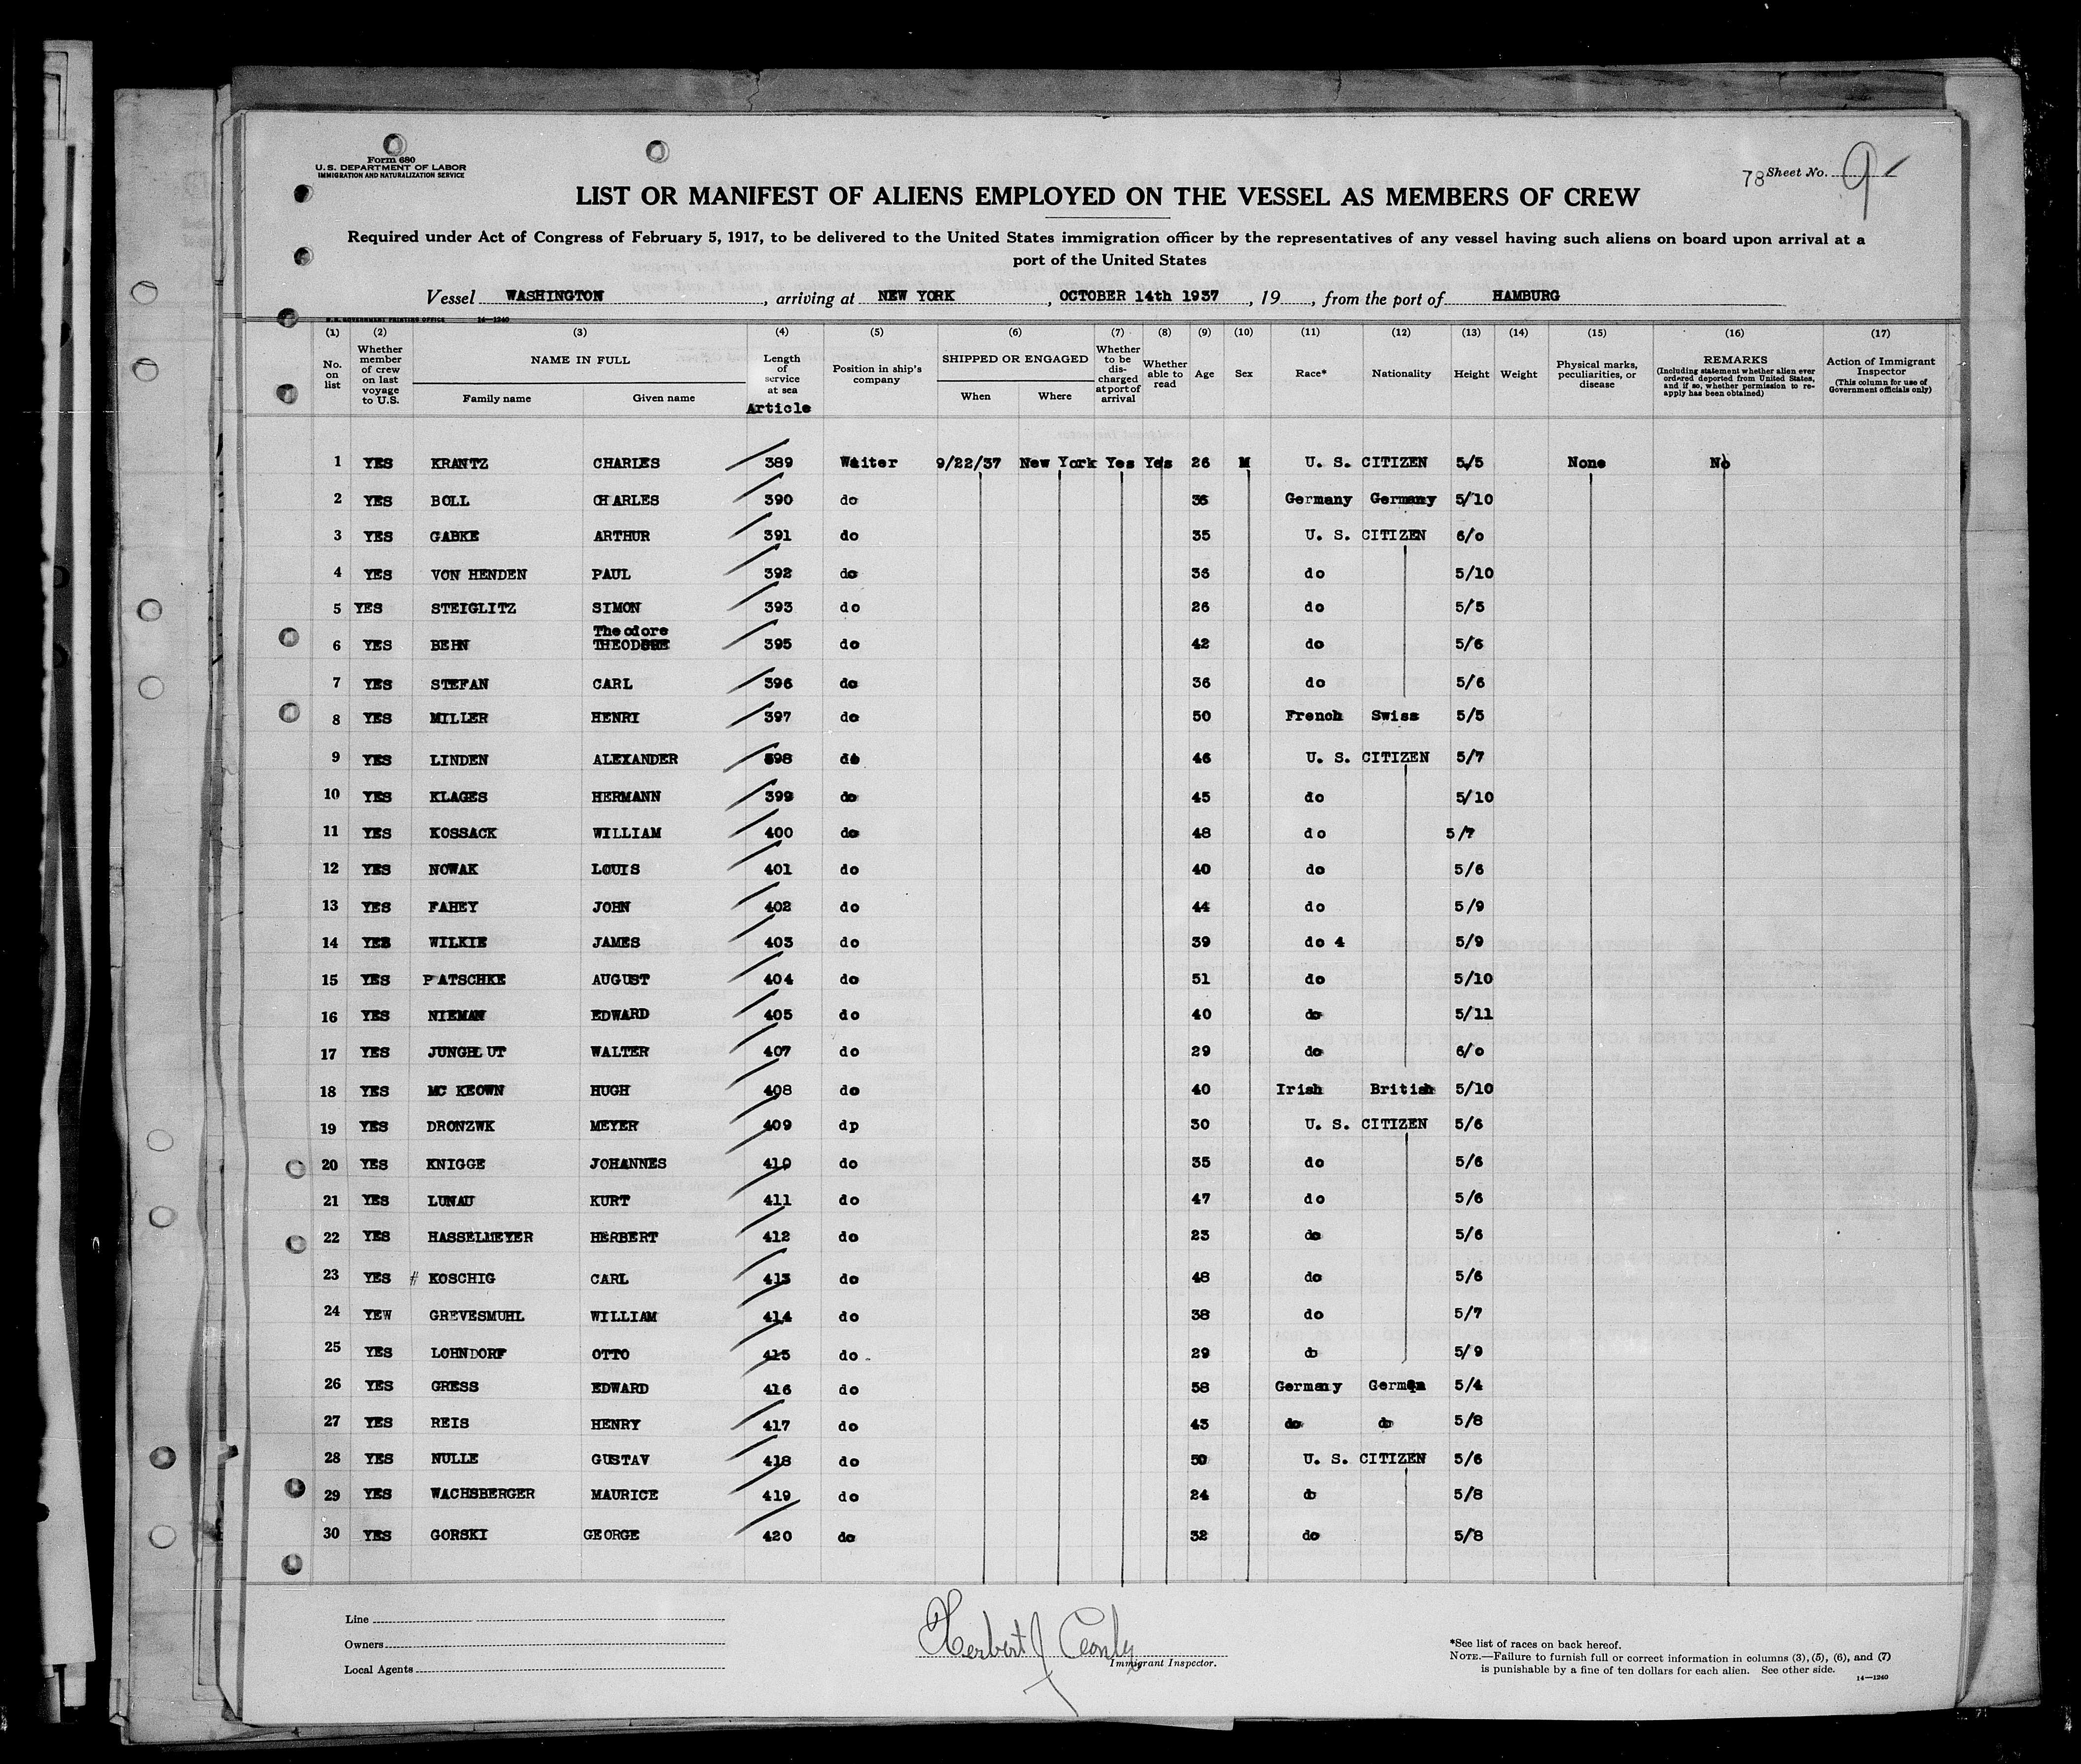 Form 680
U. S. DEPARTMENT OF LABOR
IMMIGRATION AND NATURALIZATION SERVICE
78 Sheet No. 9
LIST OR MANIFEST OF ALIENS EMPLOYED ON THE VESSEL AS MEMBERS OF CREW
Required under Act of Congress of February 5, 1917, to be delivered to the United States immigration officer by the representatives of any vessel having such aliens on board upon arrival at a
port of the United States
Vessel WASHINGTON, arriving at NEW YORK, OCTOBER 14th 1937, 19, from the port of HAMBURG
U. S. GOVERNMENT PRINTING OFFICE 14—1240
(1) (2) (3) (4) (5) (6) (7) (8) (9) (10) (11) (12) (13) (14) (15) (16) (17)
No. on list
Whether member of crew on last voyage to U.S.
NAME IN FULL
Family name
Given name
Length of service at sea
Article
Position in ship's company
SHIPPED OR ENGAGED
When
Where
Whether to be discharged at port of arrival
Whether able to read
Age
Sex
Race*
Nationality
Height
Weight
Physical marks, peculiarities, or disease
REMARKS
(Including statement whether alien ever ordered deported from United States, and if so, whether permission to reapply has been obtained)
Action of Immigrant Inspector
(This column for use of Government officials only)
1 YES KRANTZ CHARLES 389 Waiter 9/22/37 New York Yes Yes 26 M U. S. CITIZEN 5/5 None No
2 YES BOLL CHARLES 390 do 36 Germany Germany 5/10
3 YES GABKE ARTHUR 391 do 35 U. S. CITIZEN 6/0
4 YES VON HENDEN PAUL 392 do 36 do 5/10
5 YES STEIGLITZ SIMON 393 do 26 do 5/5
Theodore
6 YES BEHN THEODORE 395 do 42 do 5/6
7 YES STEFAN CARL 396 do 36 do 5/6
8 YES MILLER HENRI 397 do 50 French Swiss 5/5
9 YES LINDEN ALEXANDER 398 do 46 U. S. CITIZEN 5/7
10 YES KLAGES HERMANN 399 do 45 do 5/10
11 YES KOSSACK WILLIAM 400 do 48 do 5/7
12 YES NOWAK LOUIS 401 do 40 do 5/6
13 YES FAHEY JOHN 402 do 44 do 5/9
14 YES WILKIE JAMES 403 do 39 do 4 5/9
15 YES PATSCHKE AUGUST 404 do 51 do 5/10
16 YES NIEMAN EDWARD 405 do 40 do 5/11
17 YES JUNGHLUT WALTER 407 do 29 do 6/0
18 YES MC KEOWN HUGH 408 do 40 Irish British 5/10
19 YES DRONZWK MEYER 409 dp 30 U. S. CITIZEN 5/6
20 YES KNIGGE JOHANNES 410 do 35 do 5/6
21 YES LUNAU KURT 411 do 47 do 5/6
22 YES HASSELMEYER HERBERT 412 do 23 do 5/6
23 YES # KOSCHIG CARL 413 do 48 do 5/6
24 YEW GREVESMUHL WILLIAM 414 do 38 do 5/7
25 YES LOHNDORF OTTO 415 do 29 do 5/9
26 YES GRESS EDWARD 416 do 58 Germany German 5/4
27 YES REIS HENRY 417 do 43 do do 5/8
28 YES NULLE GUSTAV 418 do 50 U. S. CITIZEN 5/6
29 YES WACHSBERGER MAURICE 419 do 24 do 5/8
30 YES GORSKI GEORGE 420 do 32 do 5/8
Line
Owners
Local Agents
Herbert J Conly
Immigrant Inspector.
*See list of races on back hereof.
NOTE.—Failure to furnish full or correct information in columns (3), (5), (6), and (7)
is punishable by a fine of ten dollars for each alien. See other side.
14—1240